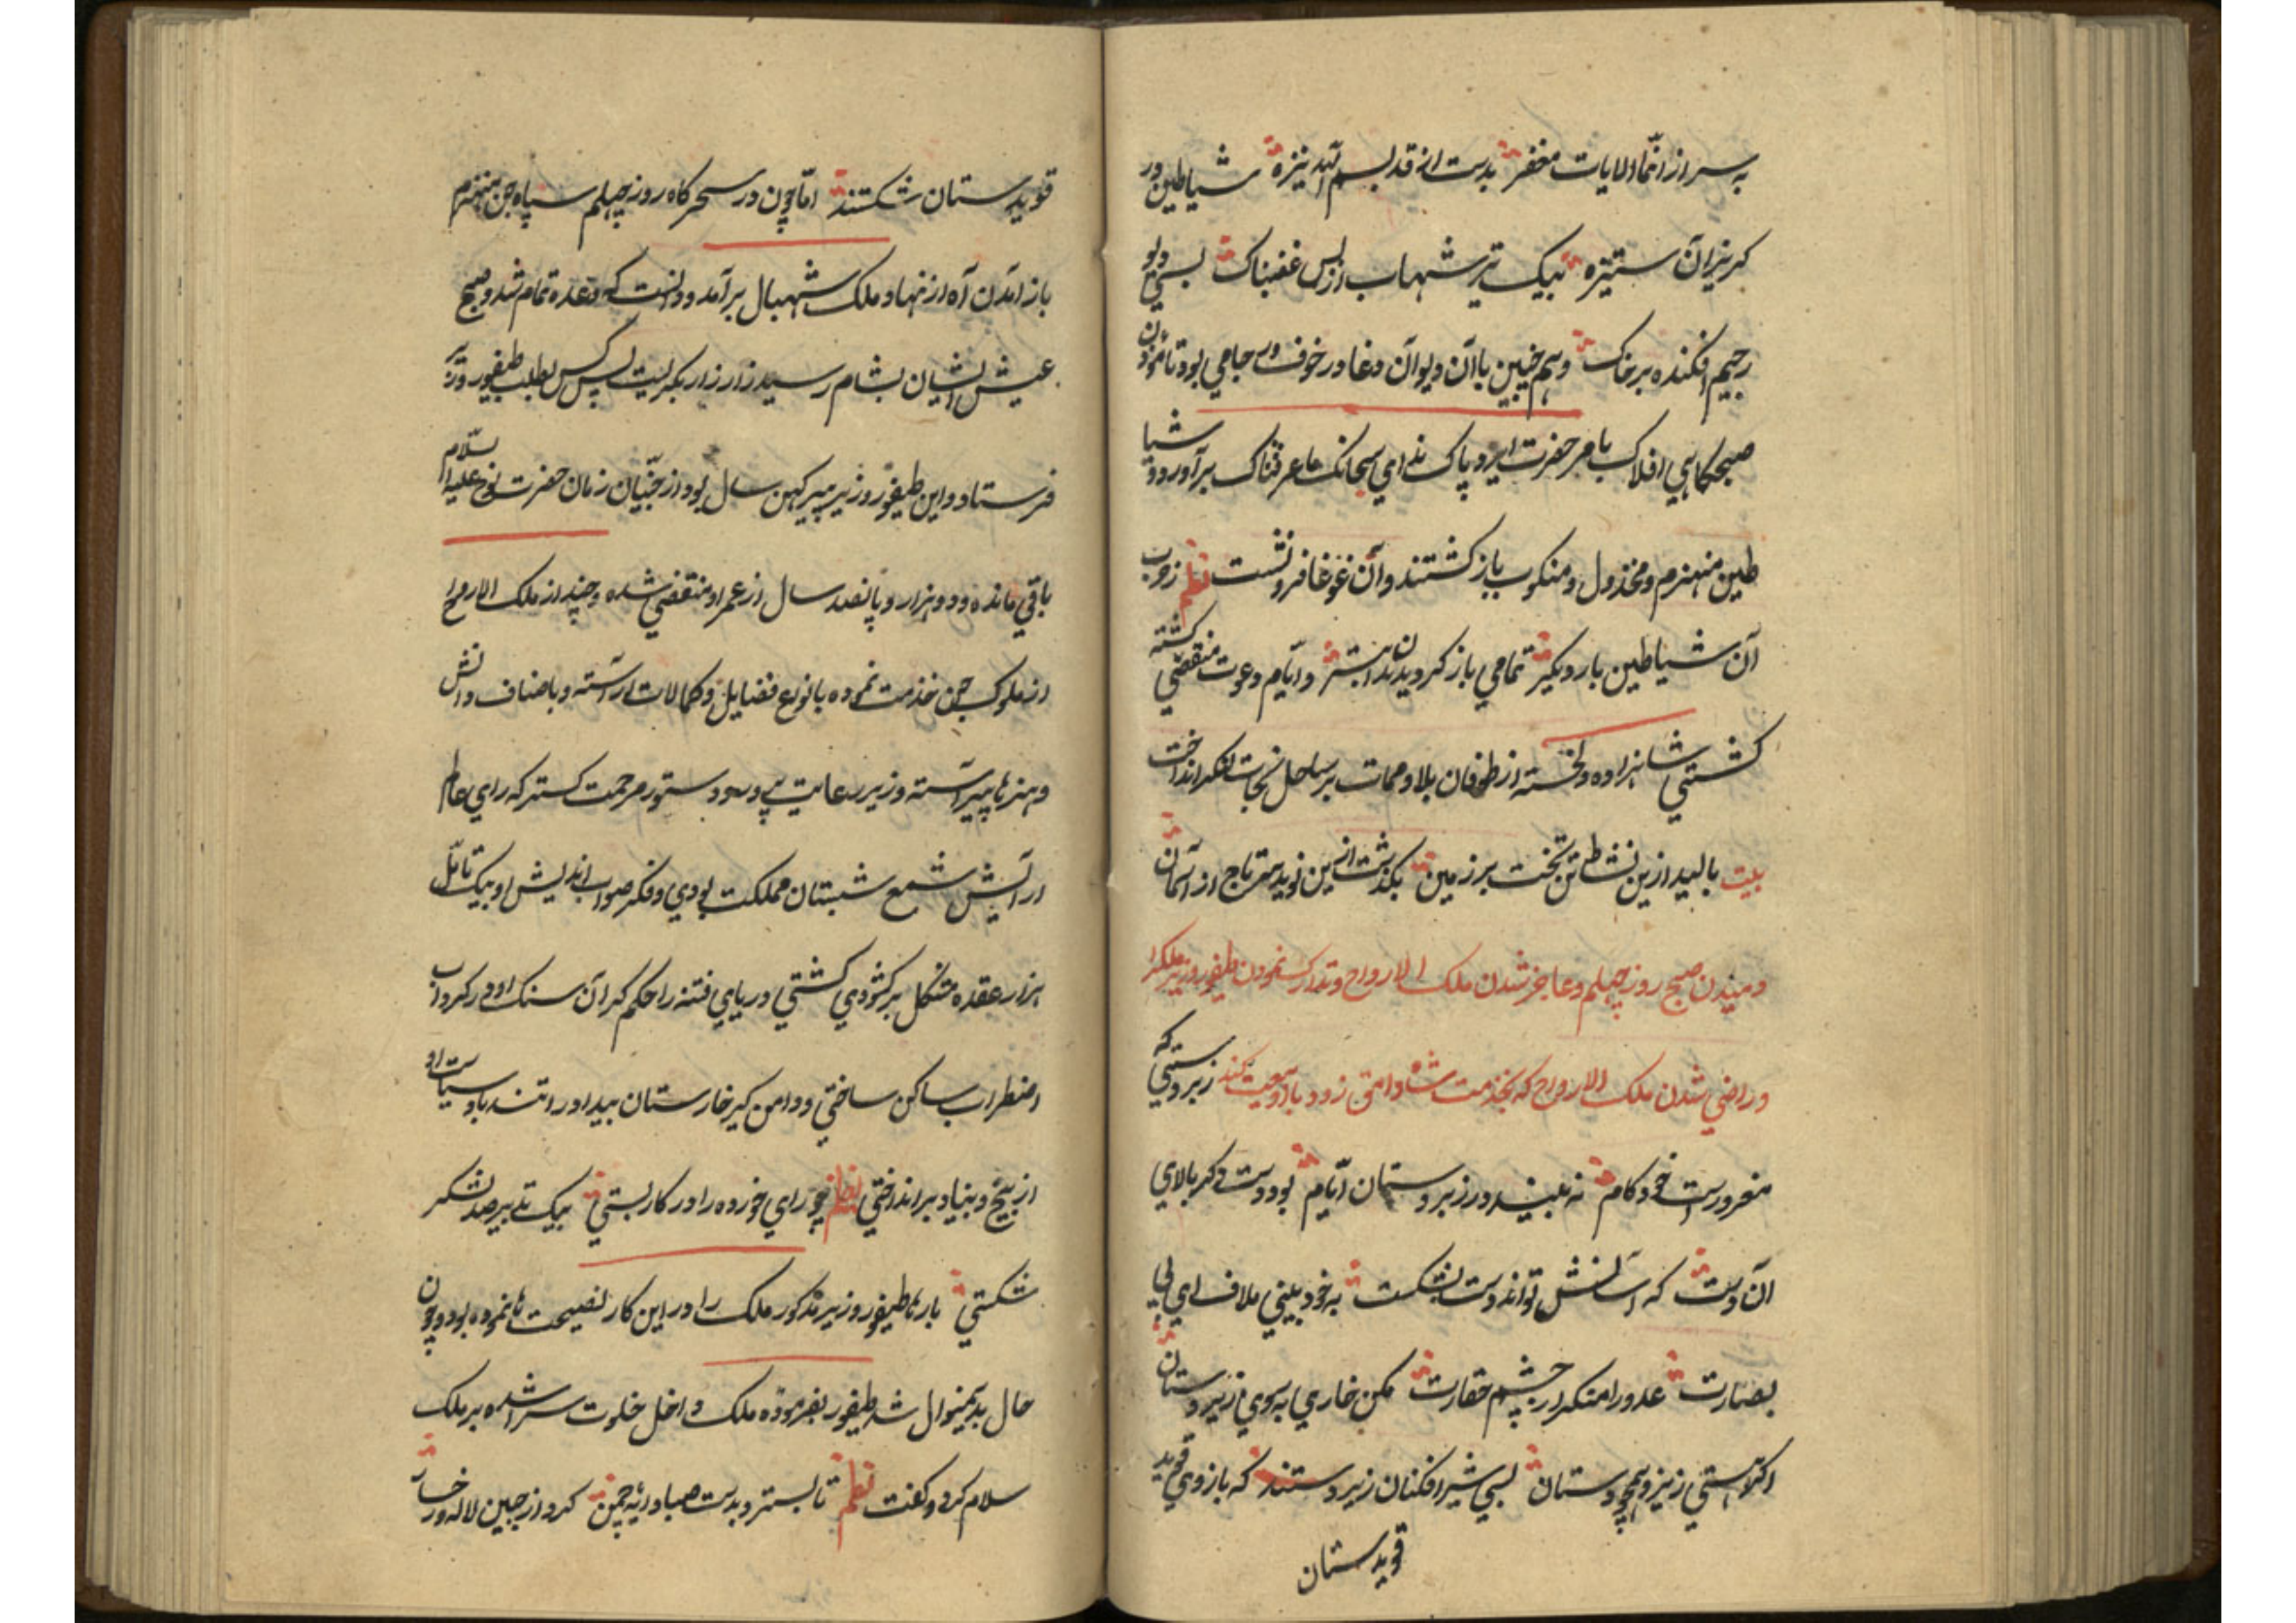 به سر از انما و لایات مغفر بدست از قد بسم الله نیزه شیاطین ور
کریزان ستیزه بیک تیر شهاب از بس غضبناک بسی دیو
رجیم افکنده بر خاک و هم چنین با آن دیوان دغا در خوف و بود تا موذن
صبحکاهی افلاک بامر حضرت ایزد پاک ندای سبحانک ما عرفناک برآورد و شیا
طین منهزم و مخذول و منکوب باز کشتند و آن غوغا فرو نشست نظم زوب
آن شیاطین بار دیکر تمامی باز کردیدند ابتر و ایام دعوت منقضی کشته
کشتی شاهزاده دلخسته از طوفان بلا و ممات بر ساحل نجات لنکر انداخت
بیت بالید ازین نشاط تن تخت بر زمین بکذشت ازین نوید سر تاج از آسمان
دمیدن صبح روز چهلم و عاجز شدن ملک الارواح و تدارک نمودن طیفور وزیر ملکرا
و راضی شدن ملک الارواح که بخدمت شاه دامق زود با او بیعت کند زبردستی که
مغرورست خود کام نه بیند در زبردستان ایام بود دست دکر بالای
آن دست که آسانش تواند دست بشکست به خود بینی ملاف ای بی
بصارت عدو را منکر از چشم حقارت مکن خاری به سوی زیردستان
اکر هستی ز نیرو همچو دستان بسی شیر افکنان زیر دستند که بازوی قوید
قویدستان
قویدستان شکستند اما چون در سحرکاه روز چهلم سپاه جن منهزم
باز آمدن آه از نهاد ملک شهبال برآمد و دانست که وعده تمام شد و صبح
عیش ایشان بشام رسید زار زار بکریست پس کس بطلب طیفور وزیر
فرستاد و این طیفور وزیر پیر کهن سال بود از جنیان زمان حضرت نوح علیه السلام
باقی مانده و دو هزار و پانصد سال از عمر او منقضی شده و چند از ملک الارواح
از ملوک جن خدمت نموده بانواع فضایل و کمالات آراسته و باصناف دانش
و هنرها پیراسته وزیر رعایت و دستور مرحمت کستر که رای عالم
آرایش شمع شبستان مملکت بودی و فکر صواب اندیش او بیک تامل
هزار عقده مشکل برکشودی کشتی دریای فتنه را حکم کران سنک او در کرداب
اضطراب ساکن ساختی و دامن کیر خارستان بیداد را تند باد سیاست او
از بیخ و بنیاد برانداختی نظم چو رای خورده را در کار بستی بیک تدبیر صد لشکر
شکستی بارها طیفور وزیر مذکور ملک را در این کار نصیحت ها نموده بود و چون
حال بدینمنوال شد طیفور بفرموده ملک داخل خلوت سرا شده بر ملک
سلام کرد و کفت نظم تا بسترد بدست صبا دایه چمن کرد از جبین لاله و رخسار